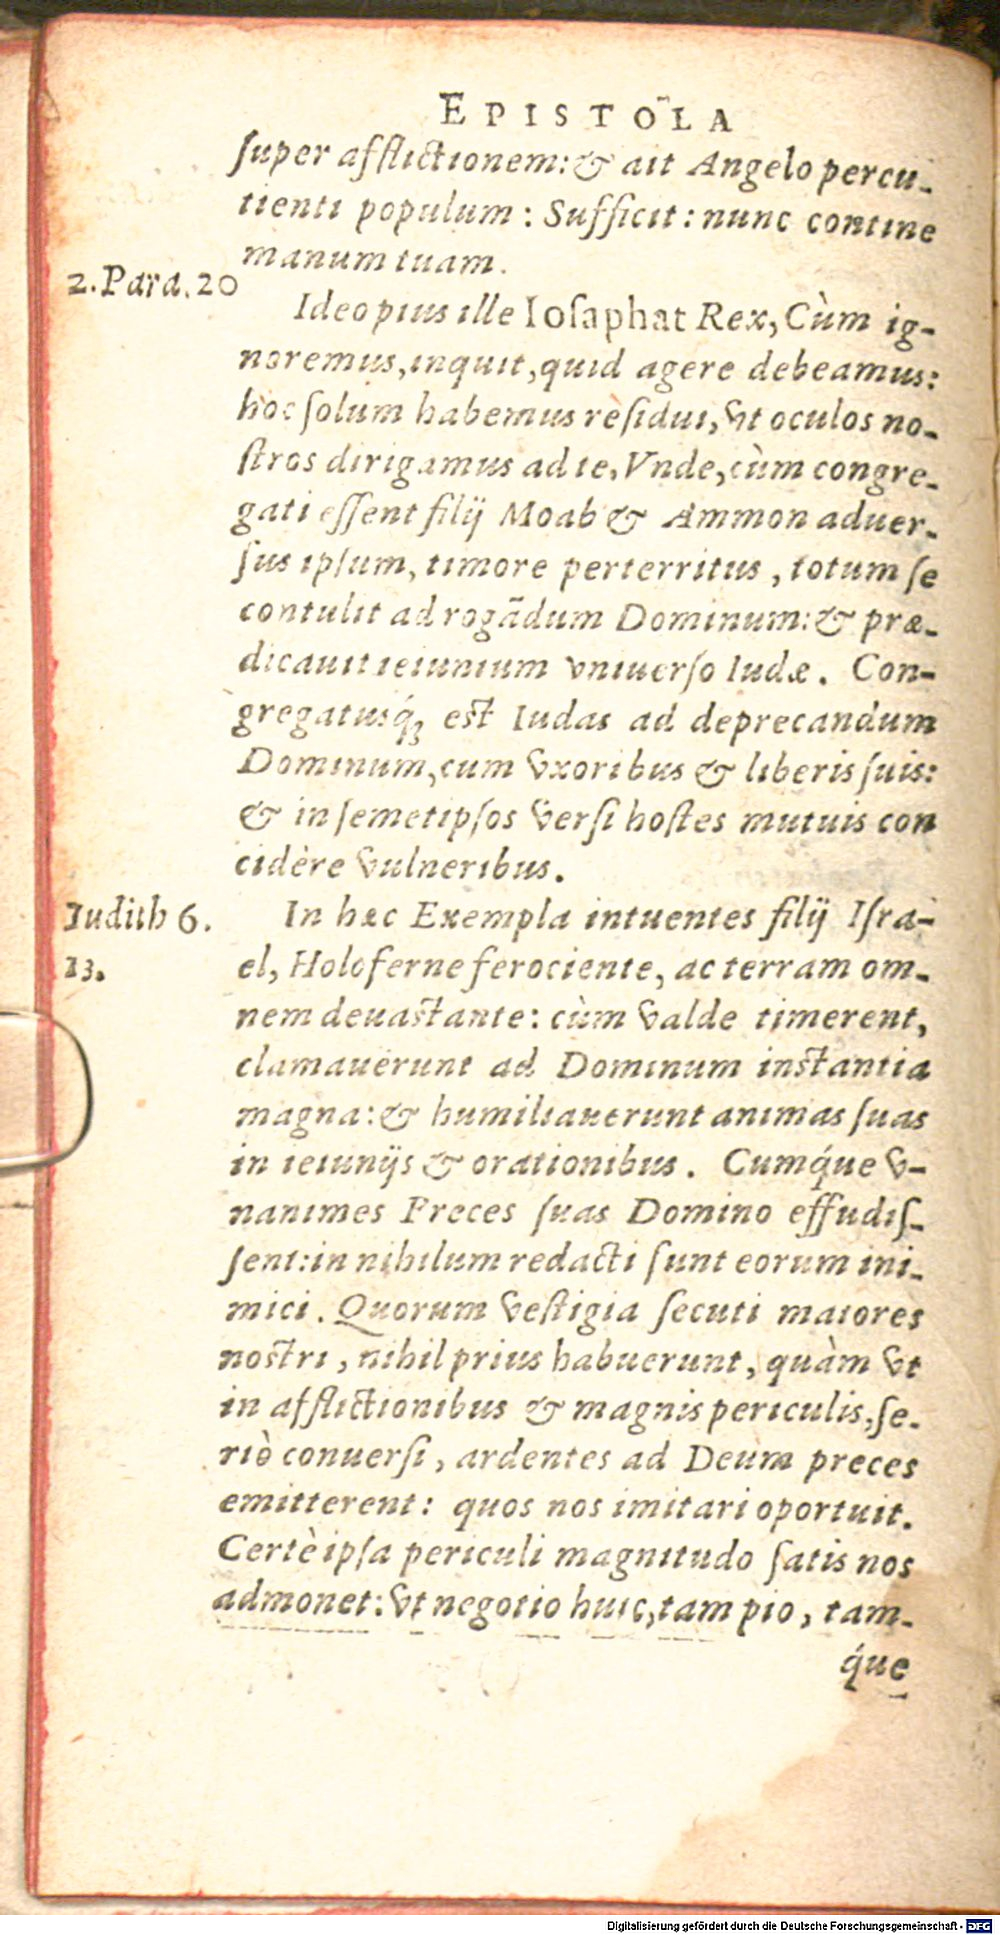 EPISTOLA
ſuper afflictionem: & ait Angelo percu-
tienti populum: Sufficit: nunc contine
manum tuam.
2. Para. 20
Ideo pius ille Ioſaphat Rex, Cùm ig-
noremus, inquit, quid agere debeamus:
hoc ſolum habemus reſidui, vt oculos no-
ſtros dirigamus ad te. Vnde, cùm congre-
gati eſſent filij Moab & Ammon aduer-
ſus ipſum, timore perterritus, totum ſe
contulit ad rogãdum Dominum: & præ-
dicauit ieiunium vniuerſo Iudæ. Con-
gregatusq́ꝫ est Iudas ad deprecandum
Dominum, cum vxoribus & liberis ſuis:
& in ſemetipſos verſi hoſtes mutuis con
cidère vulneribus.
Iudith 6.
13.
In hæc Exempla intuentes filij Iſra-
el, Holoferne ferociente, ac terram om-
nem deuastante: cùm valde timerent,
clamauerunt ad Dominum instantia
magna: & humiliauerunt animas ſuas
in ieiunijs & orationibus. Cumq́ue v-
nanimes Preces ſuas Domino effudiſ-
ſent: in nihilum redacti ſunt eorum ini-
mici. Quorum veſtigia ſecuti maiores
nostri, nihil prius habuerunt, quàm vt
in afflictionibus & magnis periculis, ſe-
riò conuerſi, ardentes ad Deum preces
emitterent: quos nos imitari oportuit.
Certè ipſa periculi magnitudo ſatis nos
admonet: vt negotio huic, tam pio, tam-
q́ue
Digitalisierung gefördert durch die Deutsche Forschungsgemeinschaft - DFG